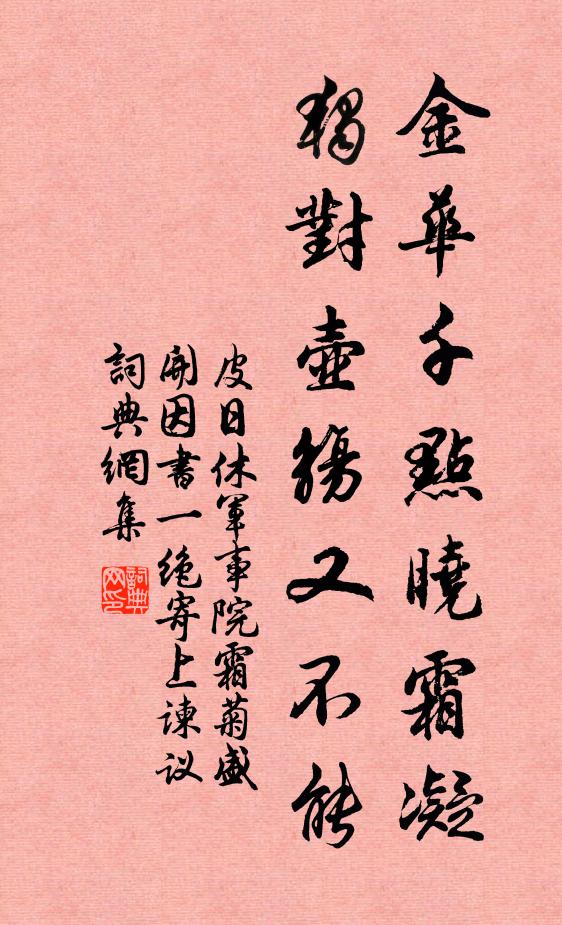 金華千點曉霜凝
獨對壺觴又不能
皮日休軍事院霜菊盛
開因書一絶寄上諫议
詞典網集
詞典网印